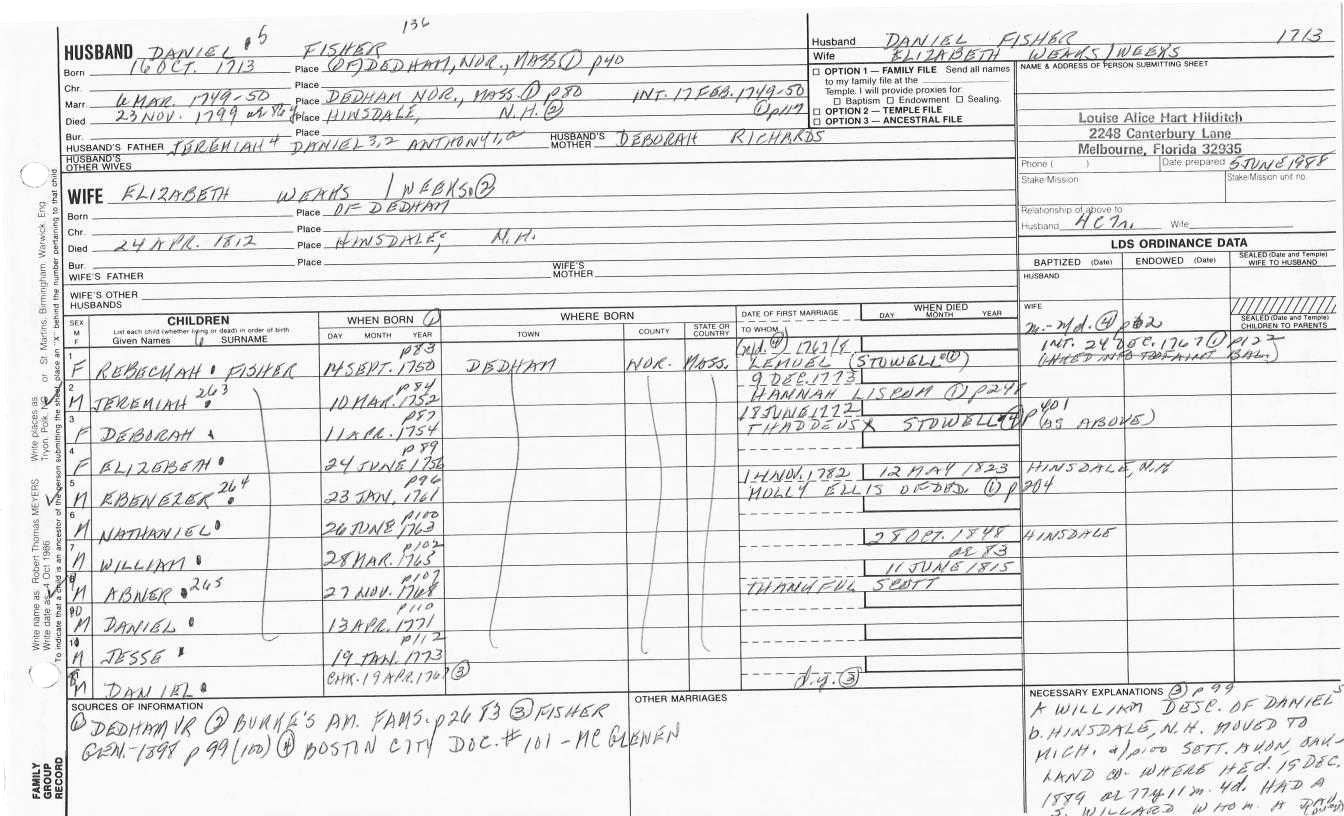 136
HUSBAND DANIEL 5 FISHER
Born 16 OCT. 1713 Place (OF) DEDHAM, NOR., MASS ① p40
Chr. Place
Marr. 6 MAR. 1749-50 Place DEDHAM NOR., MASS. ① p80 INT. 17 FEB. 1749-50
Died 23 NOV. 1799 Place HINSDALE, N.H. ② ① p117
Bur. Place
HUSBAND'S FATHER JEREMIAH 4 DANIEL 3,2 ANTHONY 1,0 HUSBAND'S MOTHER DEBORAH RICHARDS
HUSBAND'S OTHER WIVES
WIFE ELIZABETH WEARS / WEEKS ②
Born Place OF DEDHAM
Chr. Place
Died 24 APR. 1812 Place HINSDALE, N.H.
Bur. Place
WIFE'S FATHER WIFE'S MOTHER
WIFE'S OTHER HUSBANDS
Husband DANIEL FISHER 1713
Wife ELIZABETH WEARS/WEEKS
☐ OPTION 1 — FAMILY FILE Send all names
to my family file at the
Temple. I will provide proxies for:
☐ Baptism ☐ Endowment ☐ Sealing.
☐ OPTION 2 — TEMPLE FILE
☐ OPTION 3 — ANCESTRAL FILE
NAME & ADDRESS OF PERSON SUBMITTING SHEET
Louise Alice Hart Hilditch
2248 Canterbury Lane
Melbourne, Florida 32935
Phone ( ) Date prepared 5 JUNE 1988
Stake/Mission Stake/Mission unit no.
Relationship of above to
Husband Wife
LDS ORDINANCE DATA
BAPTIZED (Date) ENDOWED (Date) SEALED (Date and Temple) WIFE TO HUSBAND
HUSBAND
WIFE
SEALED (Date and Temple) CHILDREN TO PARENTS
SEX M F
CHILDREN
List each child (whether living or dead) in order of birth
Given Names SURNAME
WHEN BORN ①
DAY MONTH YEAR
WHERE BORN
TOWN COUNTY STATE OR COUNTRY
DATE OF FIRST MARRIAGE
TO WHOM
WHEN DIED
DAY MONTH YEAR
1 p83
F REBECKAH FISHER 14 SEPT. 1750 DEDHAM NOR. MASS. LEMUEL (STOWELL ①)
INT. 24 DEC. 1767 ① p122
2 p84 9 DEC. 1773
M JEREMIAH 263 10 MAR. 1752 HANNAH LISCOM ① p248
3 p87 18 JUNE 1772
F DEBORAH 11 APR. 1754 THADDEUS STOWELL ④ p401 (AS ABOVE)
4 p89
F ELIZEBETH 24 JUNE 1756
5 p96 14 NOV. 1782 12 MAY 1823 HINSDALE, N.H
M EBENEZER 264 23 JAN. 1761 MOLLY ELLIS OF DED. ① p204
6 p100
M NATHANIEL 26 JUNE 1763
7 p102 28 OCT. 1848 HINSDALE
M WILLIAM 28 MAR. 1765 ae 83
8 p107 11 JUNE 1815
M ABNER 265 27 NOV. 1768 THANKFUL SCOTT
p110
M DANIEL 13 APR. 1771
10 p112
M JESSE 19 JAN. 1773
CHR. 19 APR. 1767 ③
M DANIEL d.y. ③
SOURCES OF INFORMATION
① DEDHAM VR ② BURKE'S AM. FAMS. p2683 ③ FISHER
GEN.-1898 p 99 (100) ④ BOSTON CITY DOC. # 101 - MC GLENEN
OTHER MARRIAGES
NECESSARY EXPLANATIONS ③ p99
A WILLIAM DESC. OF DANIEL 5
b. HINSDALE, N.H. MOVED TO
MICH. p100 SETT. AVON, OAK-
LAND CO. WHERE HE d. 19 DEC.
1889 ae 77y 11m. 4d. HAD A
S. WILLARD WHO M. A
FAMILY GROUP RECORD
Write name as Robert Thomas MEYERS Write places as Tryon, Polk, NC or St. Martins, Birmingham, Warwick, Eng
Write date as 4 Oct 1986
To indicate that a child is an ancestor of the person submitting the sheet, place an "X" behind the number pertaining to that child.